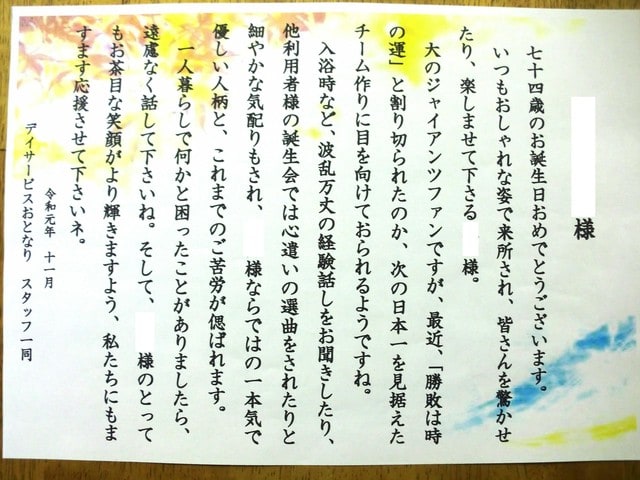 様
七十四歳のお誕生日おめでとうございます。
いつもおしゃれな姿で来所され、皆さんを驚かせ
たり、楽しませて下さる 様。
大のジャイアンツファンですが、最近、「勝敗は時
の運」と割り切られたのか、次の日本一を見据えた
チーム作りに目を向けておられるようですね。
入浴時など、波乱万丈の経験話しをお聞きしたり、
他利用者様の誕生会では心遣いの選曲をされたりと
細やかな気配りもされ、 様ならではの一本気で
優しい人柄と、これまでのご苦労が偲ばれます。
一人暮らしで何かと困ったことがありましたら、
遠慮なく話して下さいね。そして、 様のとって
もお茶目な笑顔がより輝きますよう、私たちにもま
すます応援させて下さいネ。
令和元年 十一月
デイサービスおとなり スタッフ一同